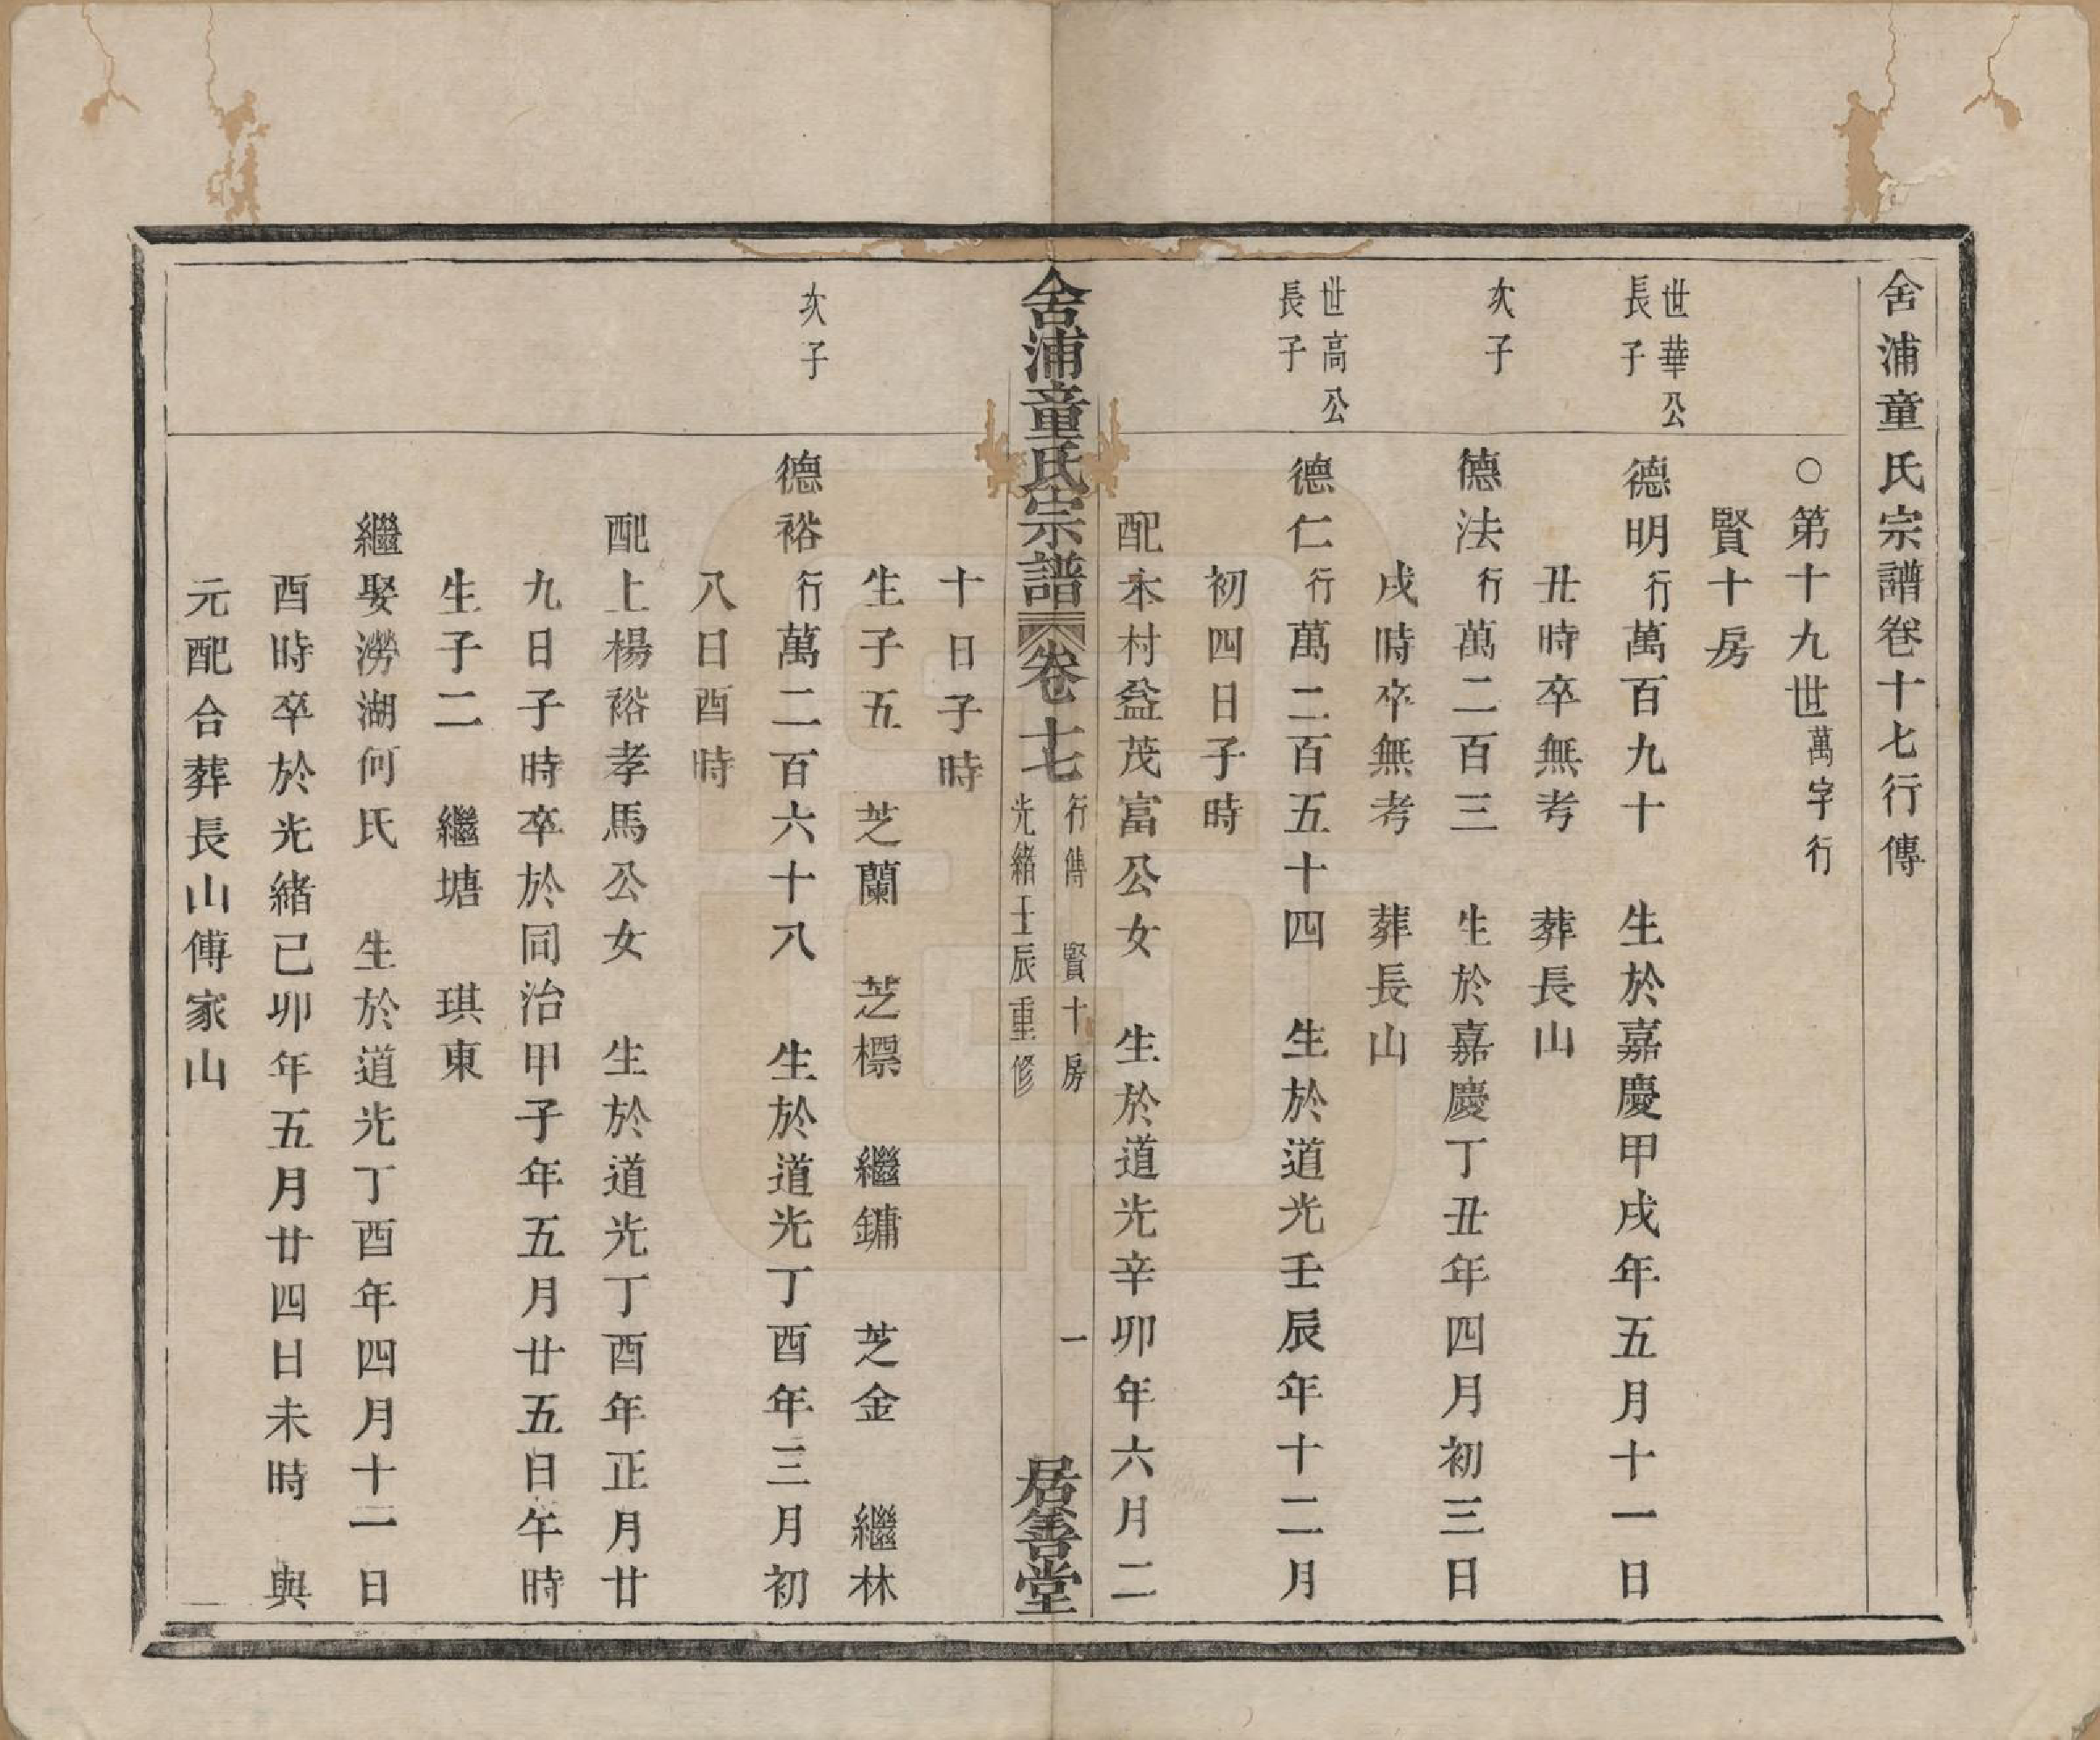 舍浦童氏宗譜卷十七行傳
○第十九世萬字行
賢十房
世華公
長子
德明行萬百九十　生於嘉慶甲戌年五月十一日
丑時卒無考　葬長山
次子
德法行萬二百三　生於嘉慶丁丑年四月初三日
戌時卒無考　葬長山
世高公
長子
德仁行萬二百五十四　生於道光壬辰年十二月
初四日子時
配木村益茂富公女　生於道光辛卯年六月二
舍浦童氏宗譜　卷十七　行傳　賢十房　一　居善堂
光緒壬辰重修
十日子時
生子五　芝蘭　芝標　繼鏞　芝金　繼林
次子
德裕行萬二百六十八　生於道光丁酉年三月初
八日酉時
配上楊裕孝馬公女　生於道光丁酉年正月廿
九日子時卒於同治甲子年五月廿五日午時
生子二　繼塘　琪東
繼娶澇湖何氏　生於道光丁酉年四月十二日
酉時卒於光緒己卯年五月廿四日未時　與
元配合葬長山傅家山